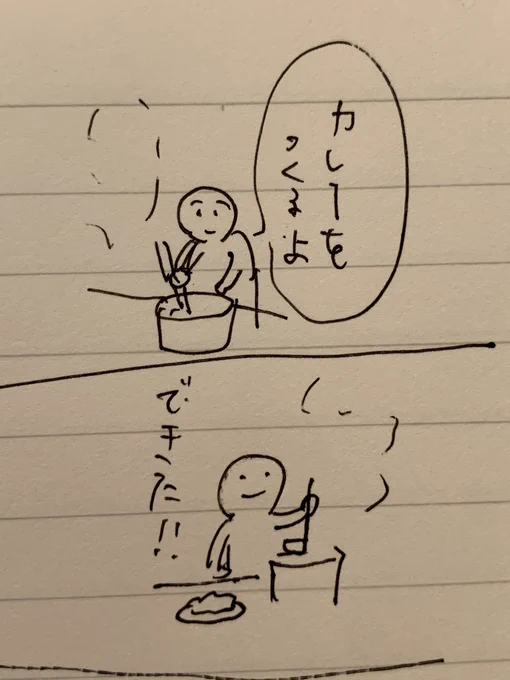 カレーを
つくるよ
できた!!